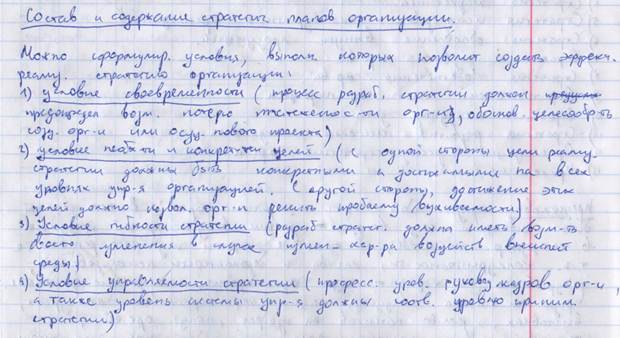 Состав и содержание стратегич. планов организации.
Можно сформулир. условия, выполн. которых позволит создать эффект.
реалис. стратегию организации:
1) условие своевременности (процесс разраб. стратегии должен
предшествовать возм. потерю орг-ии, обоснов. целесообр-ть
созд. орг-и или осущ. нового проекта)
2) условие и конкрет-ти целей (с одной стороны цели
стратегии должны быть конкретными и достижимыми на всех
уровнях упр-я организацией. С другой стороны, достижение этих
целей должно позвол. орг-и решить проблему выживаемости)
3) Условие гибкости стратегии (разраб. стратег. должна иметь возм-ть
своего изменения в случае измен. хар-ра воздейств. внешней
среды)
4) Условие управляемости стратегии (професс. уров. руковод. кадров орг-и,
а также уровень системы упр-я должны соотв. уровню приним.
стратегии)